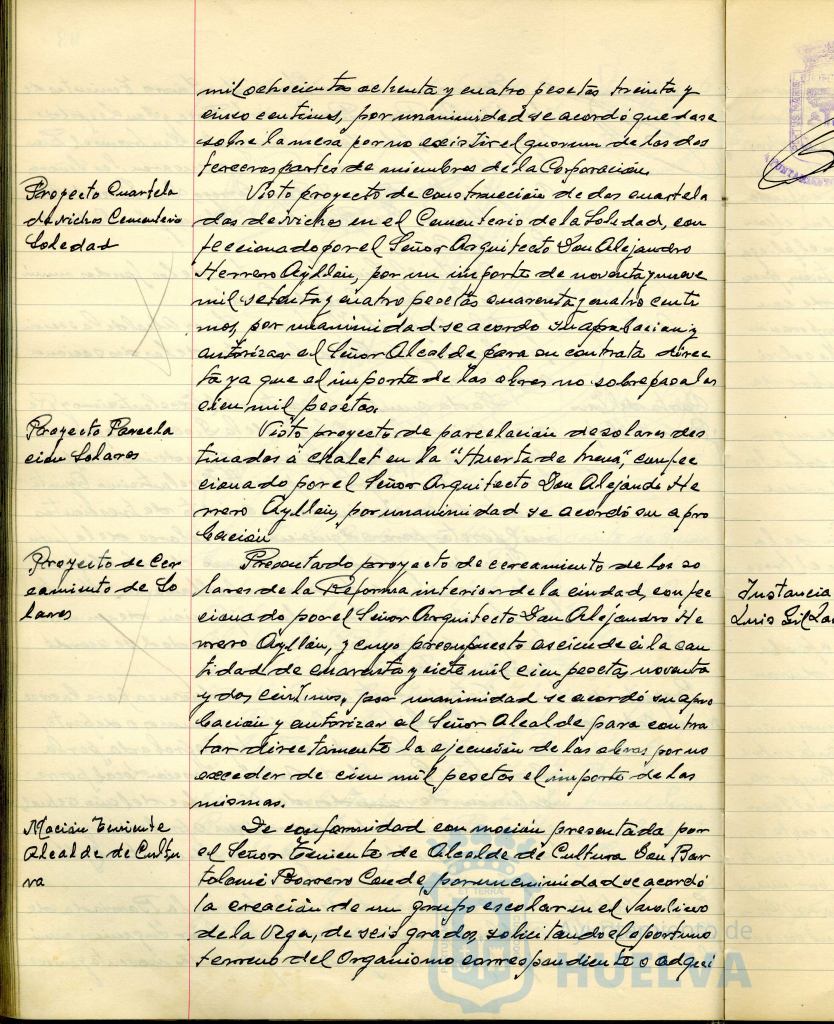 mil ochocientas ochenta y cuatro pesetas treinta y
cinco centimos, por unanimidad se acordó quedase
sobre la mesa por no existir el quorum de las dos
terceras partes de miembros de la Corporación.
Proyecto Cuartela
da nichos Cementerio
Soledad
Visto proyecto de construcción de dos cuartela
das de nichos en el Cementerio de la Soledad, con
feccionado por el Señor Arquitecto Don Alejandro
Herrero Ayllón, por un importe de noventa y nueve
mil setenta y cuatro pesetas cuarenta y cuatro centi
mos, por unanimidad se acordo su aprobacion y
autorizar al Señor Alcalde para su contrata direc
ta ya que el importe de las obras no sobrepasa las
cien mil pesetas.
Proyecto Parcela
cion Solares
Visto proyecto de parcelación de solares des
tinados á chalet en la "Huerta de Mena", confec
cionado por el Señor Arquitecto Don Alejandro He
rrero Ayllón, por unanimidad se acordó su apro
bación
Proyecto de Cer
camiento de So
lares
Presentado proyecto de cercamiento de los so
lares de la Reforma interior de la ciudad, confec
cionado por el Señor Arquitecto Don Alejandro He
rrero Ayllón, y cuyo presupuesto asciende á la can
tidad de cuarenta y siete mil cien pesetas noventa
y dos centimos, por unanimidad se acordó su apro
bación y autorizar al Señor Alcalde para contra
tar directamente la ejecución de las obras por no
exceder de cien mil pesetas el importe de las
mismas.
Moción Teniente
Alcalde de Cultu
ra
De conformidad con moción presentada por
el Señor Teniente de Alcalde de Cultura Don Bar
tolomé Borrero Conde, por unanimidad se acordó
la creación de un grupo escolar en el Molino
de la Vega, de seis grados, solicitando el oportuno
terreno del Organismo correspondiente o adqui
Instancia
Luis Gil
Ayuntamiento de
HUELVA